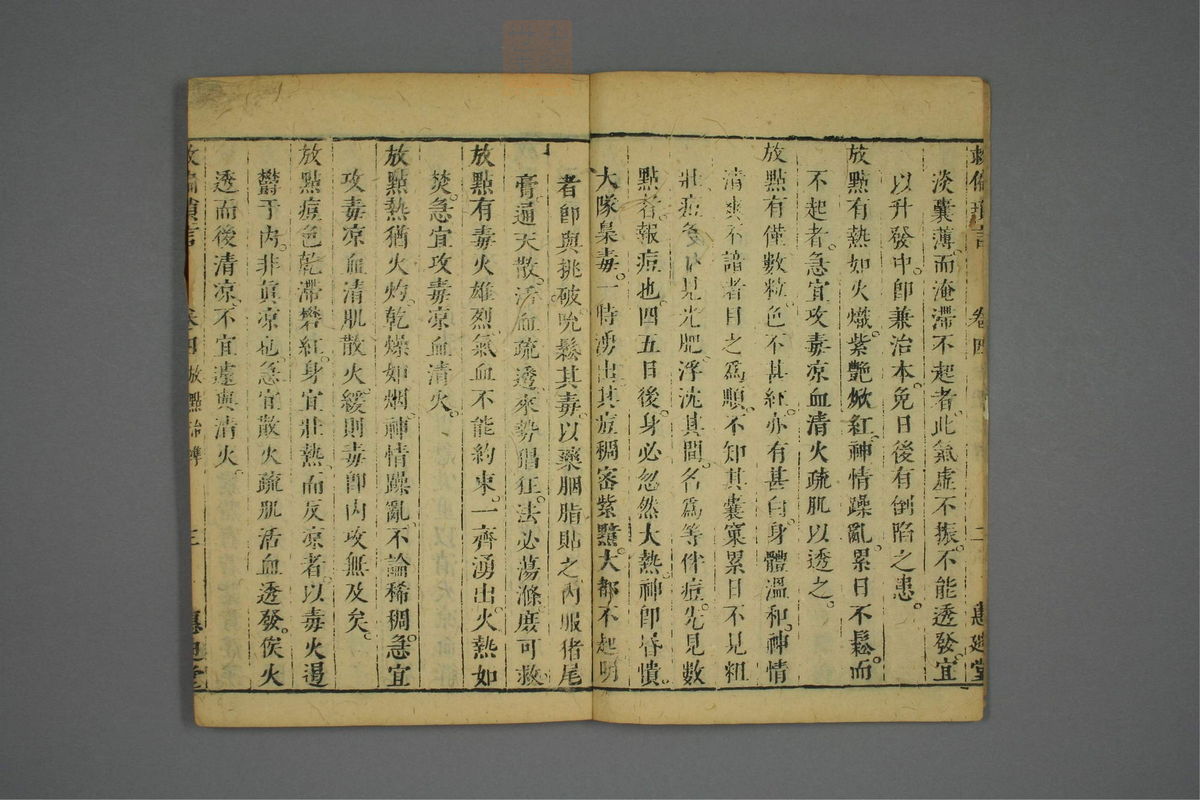 救偏瑣言 卷四 二 惠迪堂
淡囊薄而淹滯不起者此氣虛不振不能透發宜
以升發中卽兼治本免日後有倒陷之患
放點有熱如火熾紫艷焮紅神情躁亂累日不鬆而
不起者急宜攻毒凉血清火疏肌以透之
放點有僅數粒色不甚紅亦有甚白身體溫和神情
清爽不諳者目之爲順不知其囊窠累日不見粗
壯痘色不見光肥浮沈其間名爲等伴痘先見數
點者報痘也四五日後身必忽然大熱神卽昏憒
大隊梟毒一時湧出其痘稠密紫黶大都不起明
者卽與挑破吮鬆其毒以藥胭脂貼之內服猪尾
膏逼天散活血疏透來勢猖狂法必蕩滌庶可救
放點有毒火雄烈氣血不能約束一齊湧出火熱如
焚急宜攻毒凉血清火
放點熱猶火灼乾燥如烟神情躁亂不論稀稠急宜
攻毒凉血清肌散火緩則毒卽內攻無及矣
放點痘色乾滯礬紅身宜壯熱而反凉者以毒火遏
鬱于內非眞凉也急宜散火疏肌活血透發俟火
透而後清凉不宜遽與清火
救偏瑣言 卷四 放點 三 惠迪堂